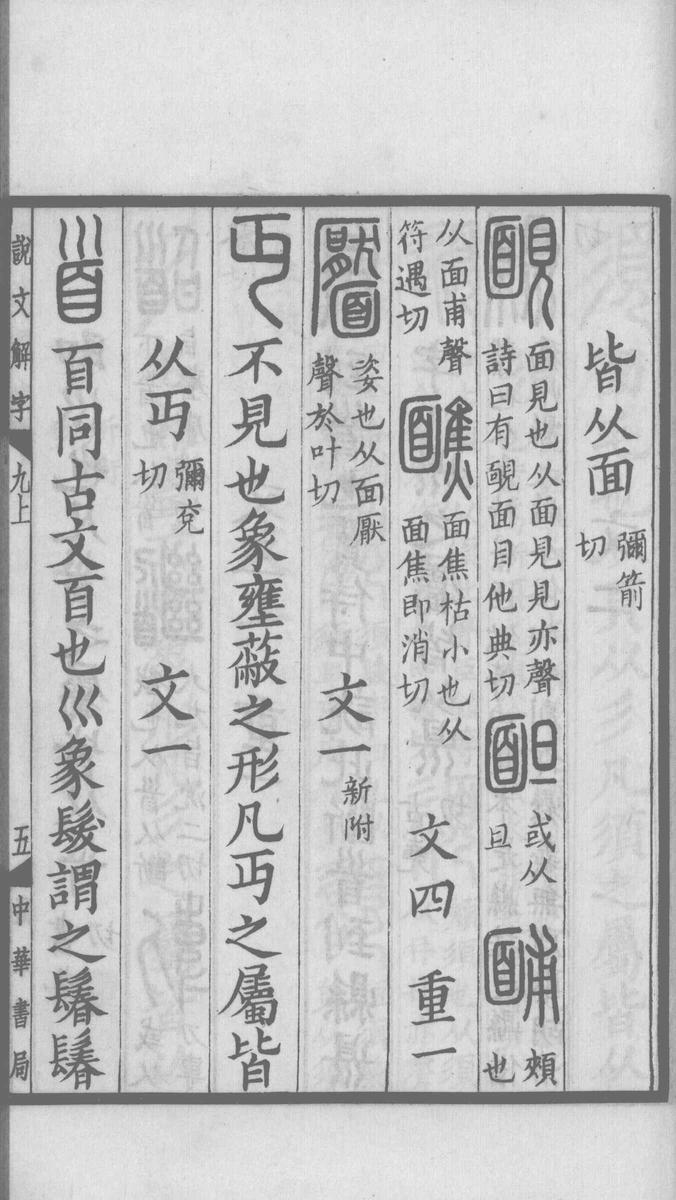 皆从面彌箭切
靦面見也从面見見亦聲詩曰有靦面目他典切䩆或从旦䩉頰也
从面甫聲符遇切醮面焦枯小也从面焦即消切文四重一
靨姿也从面厭聲於叶切文一新附
丏不見也象壅蔽之形凡丏之屬皆
从丏彌兖切文一
𩠐𦣻同古文𦣻也巛象髮謂之鬊鬊
說文解字九上五中華書局